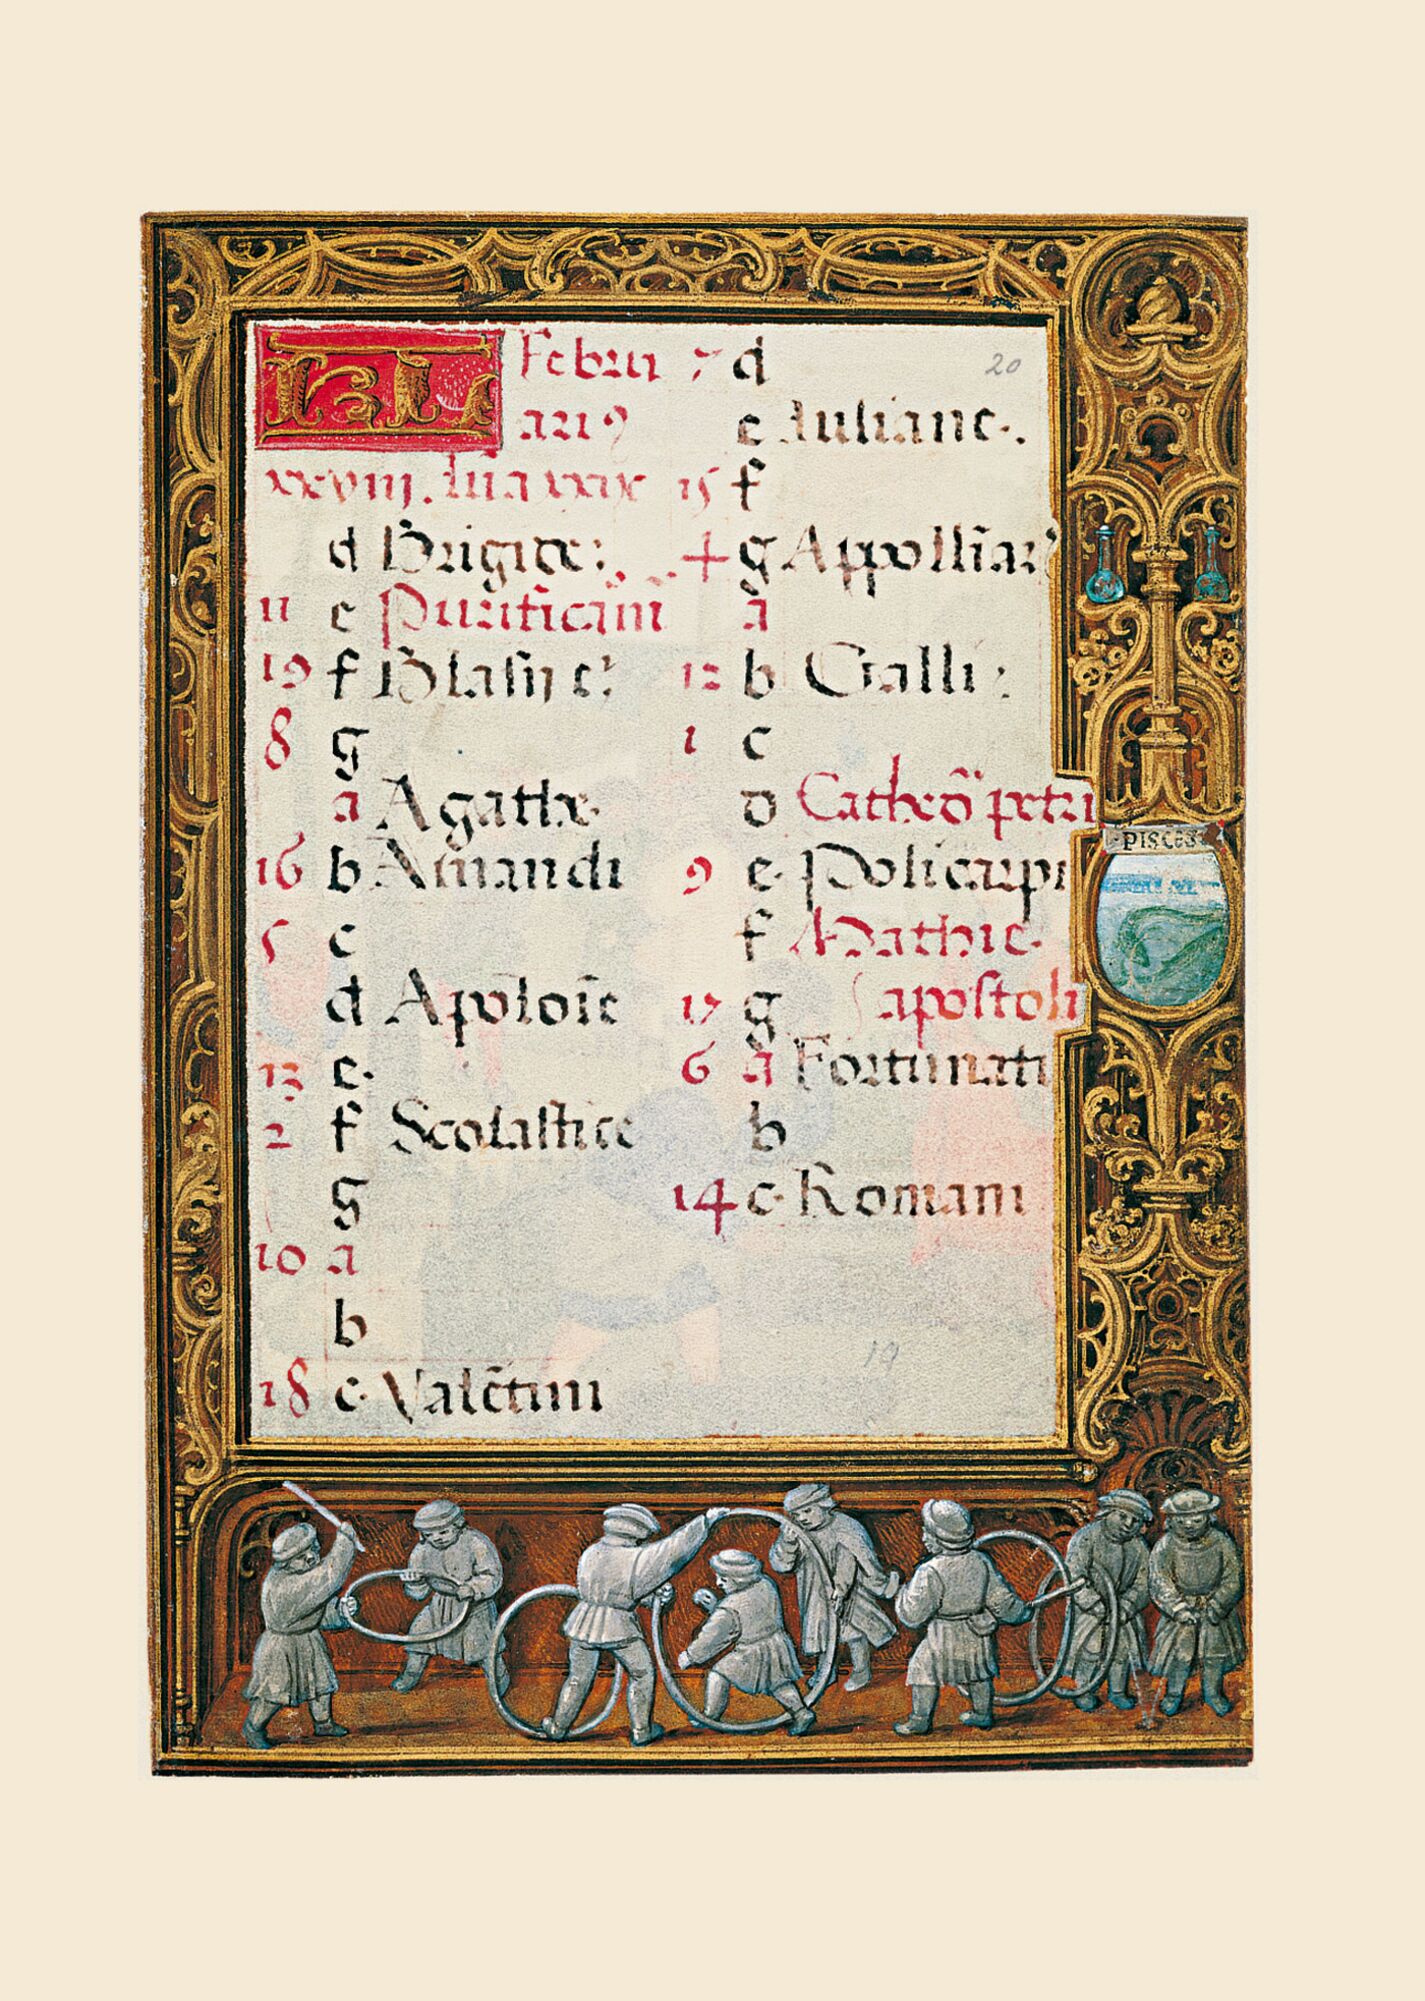 KL Februarius
xxviij. luna xxix
d Brigide:
11 e Purificatio
19 f Blasij e:
8 g
a Agathe.
16 b Amandi
5 c
d Apolonie
13 e.
2 f Scolastice
g
10 a
b
18 c. Valetini
7 d
20
e Juliane.
15 f
4 g
a
12 b Galli:
1 c
d Cathed petri
9 e. Policarpi
f Mathie.
17 g apostoli
6 a Fortunati
b
14 c. Romani
19
PISCES